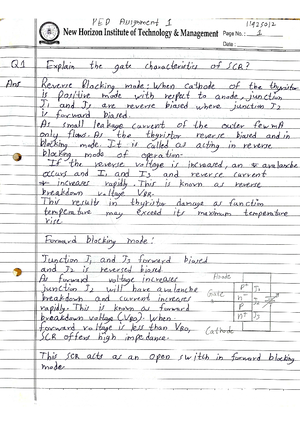 PED Assignment 1
New Horizon Institute of Technology & Management
Page No. : 1
Date :
Q1 Explain the gate characteristics of SCR?
Ans Reverse Blocking mode: When cathode of the thyristor
is positive mode with respect to anode, junction
J1 and J3 are reverse biased where junction J2
is forward biased.
A small leakage current of the outer few mA
only flows. As the thyristor reverse biased and in
blocking mode. It is called as acting in reverse
blocking mode of operation.
If the reverse voltage is increased, an avalanche
occurs and J1 and J3 and reverse current
increases rapidly. This is known as reverse
breakdown voltage VBR.
This results in thyristor damage as function
temperature may exceed its maximum temperature
rise
Forward blocking mode:
Junction J1 and J3 forward biased
and J2 is reversed biased
As forward voltage increases
junction J2 will have avalanche
breakdown and current increases
rapidly. This is known as forward
breakdown voltage (VBO). When
forward voltage is less than VBO,
SCR offers high impedance.
Gate
Cathode
This SCR acts as an open switch in forward blocking
mode